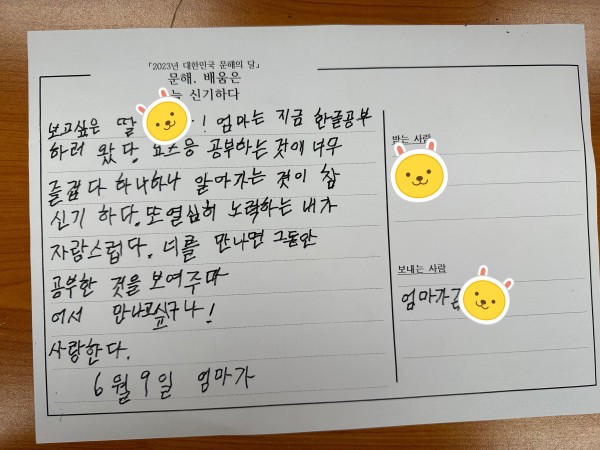 「2023년 대한민국 문해의 달」
문해, 배움은
늘 신기하다
보고싶은 딸 ! 엄마는 지금 한글공부
하러 왔다. 요즈응 공부하는것에 너무
즐겁다 하나하나 알아가는 것이 참
신기 하다. 또 열심히 노력하는 내가
자랑스럽다. 너를 만나면 그동안
공부한 것을 보여주마
어서 만나고싶구나!
사랑한다.
6월 9일 엄마가
받는 사람
보내는 사람
엄마가